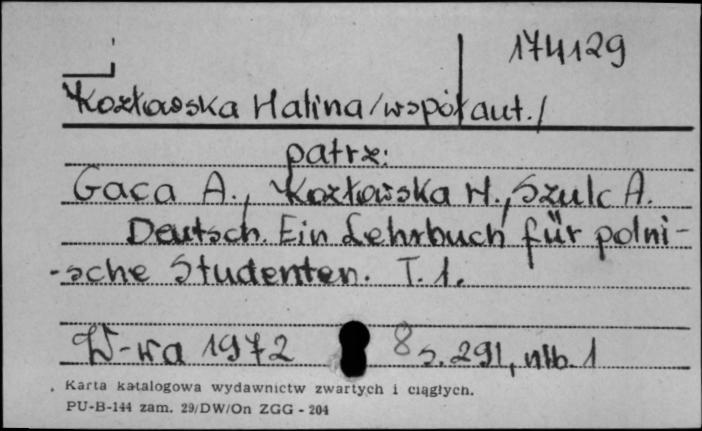 174129
Kozłowska Halina /współaut./
patrz:
Gaca A., Kozłowska H., Szulc A.
Deutsch. Ein Lehrbuch für polni-
-sche Studenten. T. 1.
W-wa 1972 8 s. 291, nlb. 1
Karta katalogowa wydawnictw zwartych i ciągłych.
PU-B-144 zam. 29/DW/On ZGG - 204